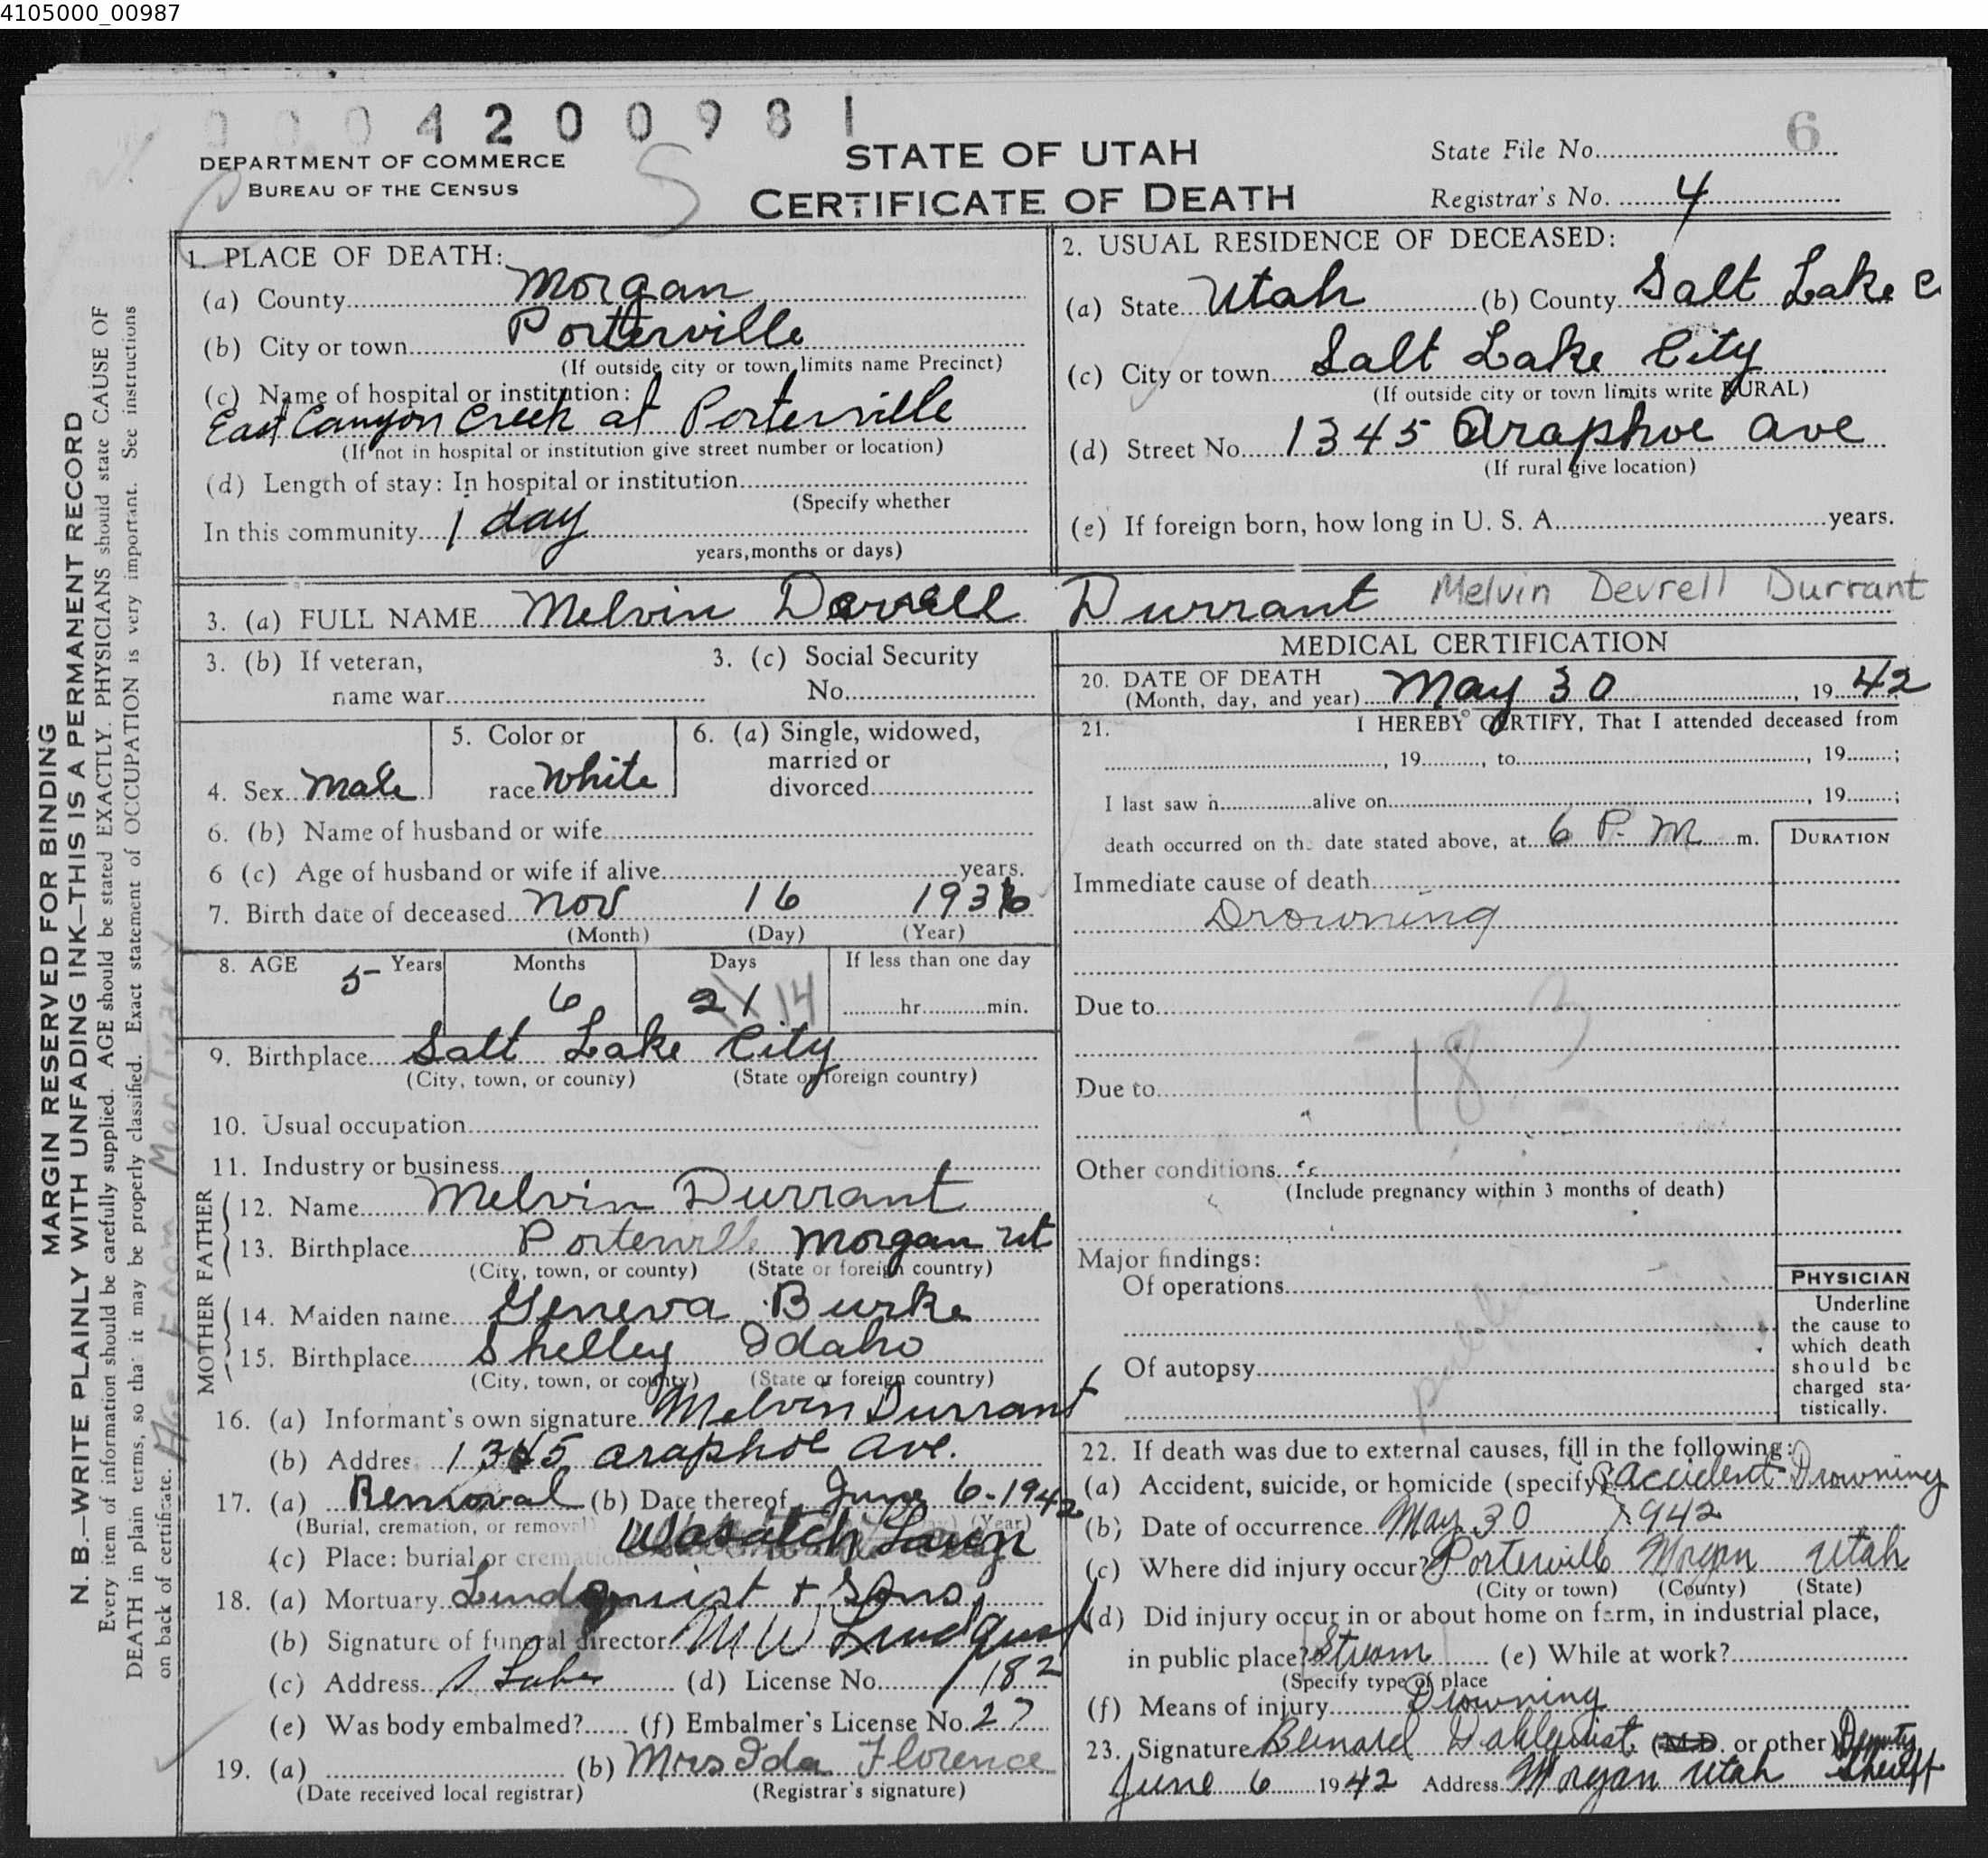 4105000_00987
0 0 0 4 2 0 0 9 8 1
6
DEPARTMENT OF COMMERCE
BUREAU OF THE CENSUS
S
STATE OF UTAH
CERTIFICATE OF DEATH
State File No.
Registrar's No. 4
MARGIN RESERVED FOR BINDING
N. B.—WRITE PLAINLY WITH UNFADING INK—THIS IS A PERMANENT RECORD
Every item of information should be carefully supplied. AGE should be stated EXACTLY. PHYSICIANS should state CAUSE OF
DEATH in plain terms, so that it may be properly classified. Exact statement of OCCUPATION is very important. See instructions
on back of certificate.
Age From Mortuary
1. PLACE OF DEATH:
(a) County Morgan
(b) City or town Porterville
(If outside city or town limits name Precinct)
(c) Name of hospital or institution:
East Canyon Creek at Porterville
(If not in hospital or institution give street number or location)
(d) Length of stay: In hospital or institution
(Specify whether
In this community 1 day
years, months or days)
2. USUAL RESIDENCE OF DECEASED:
(a) State Utah (b) County Salt Lake C
(c) City or town Salt Lake City
(If outside city or town limits write RURAL)
(d) Street No. 1345 Araphoe ave
(If rural give location)
(e) If foreign born, how long in U. S. A. years.
3. (a) FULL NAME Melvin Devrell Durrant Melvin Devrell Durrant
3. (b) If veteran,
name war
3. (c) Social Security
No.
4. Sex Male
5. Color or
race White
6. (a) Single, widowed,
married or
divorced
6. (b) Name of husband or wife
6 (c) Age of husband or wife if alive years.
7. Birth date of deceased Nov 16 1936
(Month) (Day) (Year)
8. AGE 5 Years
Months 6
Days 21 14
If less than one day
hr. min.
9. Birthplace Salt Lake City
(City, town, or county) (State or foreign country)
10. Usual occupation
11. Industry or business
FATHER
12. Name Melvin Durrant
13. Birthplace Porterville Morgan Ut
(City, town, or county) (State or foreign country)
MOTHER
14. Maiden name Geneva Burke
15. Birthplace Shelley Idaho
(City, town, or county) (State or foreign country)
16. (a) Informant's own signature Melvin Durrant
(b) Addres 1345 araphoe ave.
17. (a) Removal (b) Date thereof June 6-1942
(Burial, cremation, or removal) (Year)
(c) Place: burial or cremation Wasatch Lawn
18. (a) Mortuary Lindquist + Sons
(b) Signature of funeral director M W Lindquist
(c) Address S Lake (d) License No. 182
(e) Was body embalmed? (f) Embalmer's License No. 27
19. (a) (b) Mrs Ida Florence
(Date received local registrar) (Registrar's signature)
MEDICAL CERTIFICATION
20. DATE OF DEATH
(Month, day, and year) May 30, 1942
21. I HEREBY CERTIFY, That I attended deceased from
, 19 , to , 19 ;
I last saw h alive on , 19 ;
death occurred on the date stated above, at 6 P. M m.
DURATION
Immediate cause of death
Drowning
Due to
183
Due to
Other conditions
(Include pregnancy within 3 months of death)
Major findings:
Of operations
Of autopsy
PHYSICIAN
Underline
the cause to
which death
should be
charged sta-
tistically.
22. If death was due to external causes, fill in the following:
(a) Accident, suicide, or homicide (specify) accident Drowning
(b) Date of occurrence May 30 1942
(c) Where did injury occur? Porterville Morgan Utah
(City or town) (County) (State)
(d) Did injury occur in or about home on farm, in industrial place,
in public place? Stream (e) While at work?
(Specify type of place
(f) Means of injury Drowning
23. Signature Bernard Dahlquist (M.D. or other) Deputy Sheriff
June 6 1942 Address Morgan Utah